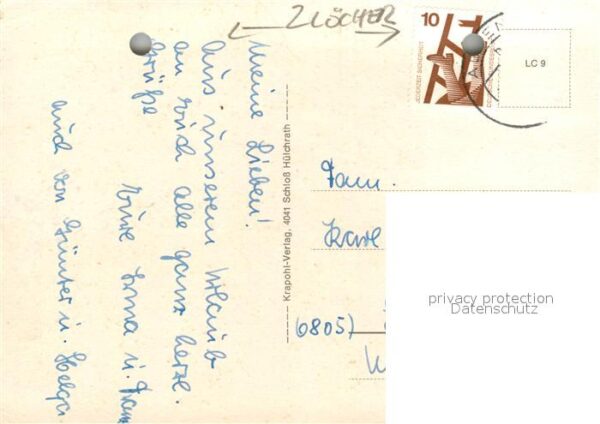 2 LÖCHER
10
JEDERZEIT SICHERHEIT
LC 9
Meine Lieben!
Aus unserem Urlaub
an Euch alle ganz herzl.
Grüße
Eure Erna u. Franz
auch von Günter u. Helga.
Krapohl-Verlag, 4041 Schloß Hülchrath
Fam.
Karl
6805)
privacy protection
Datenschutz